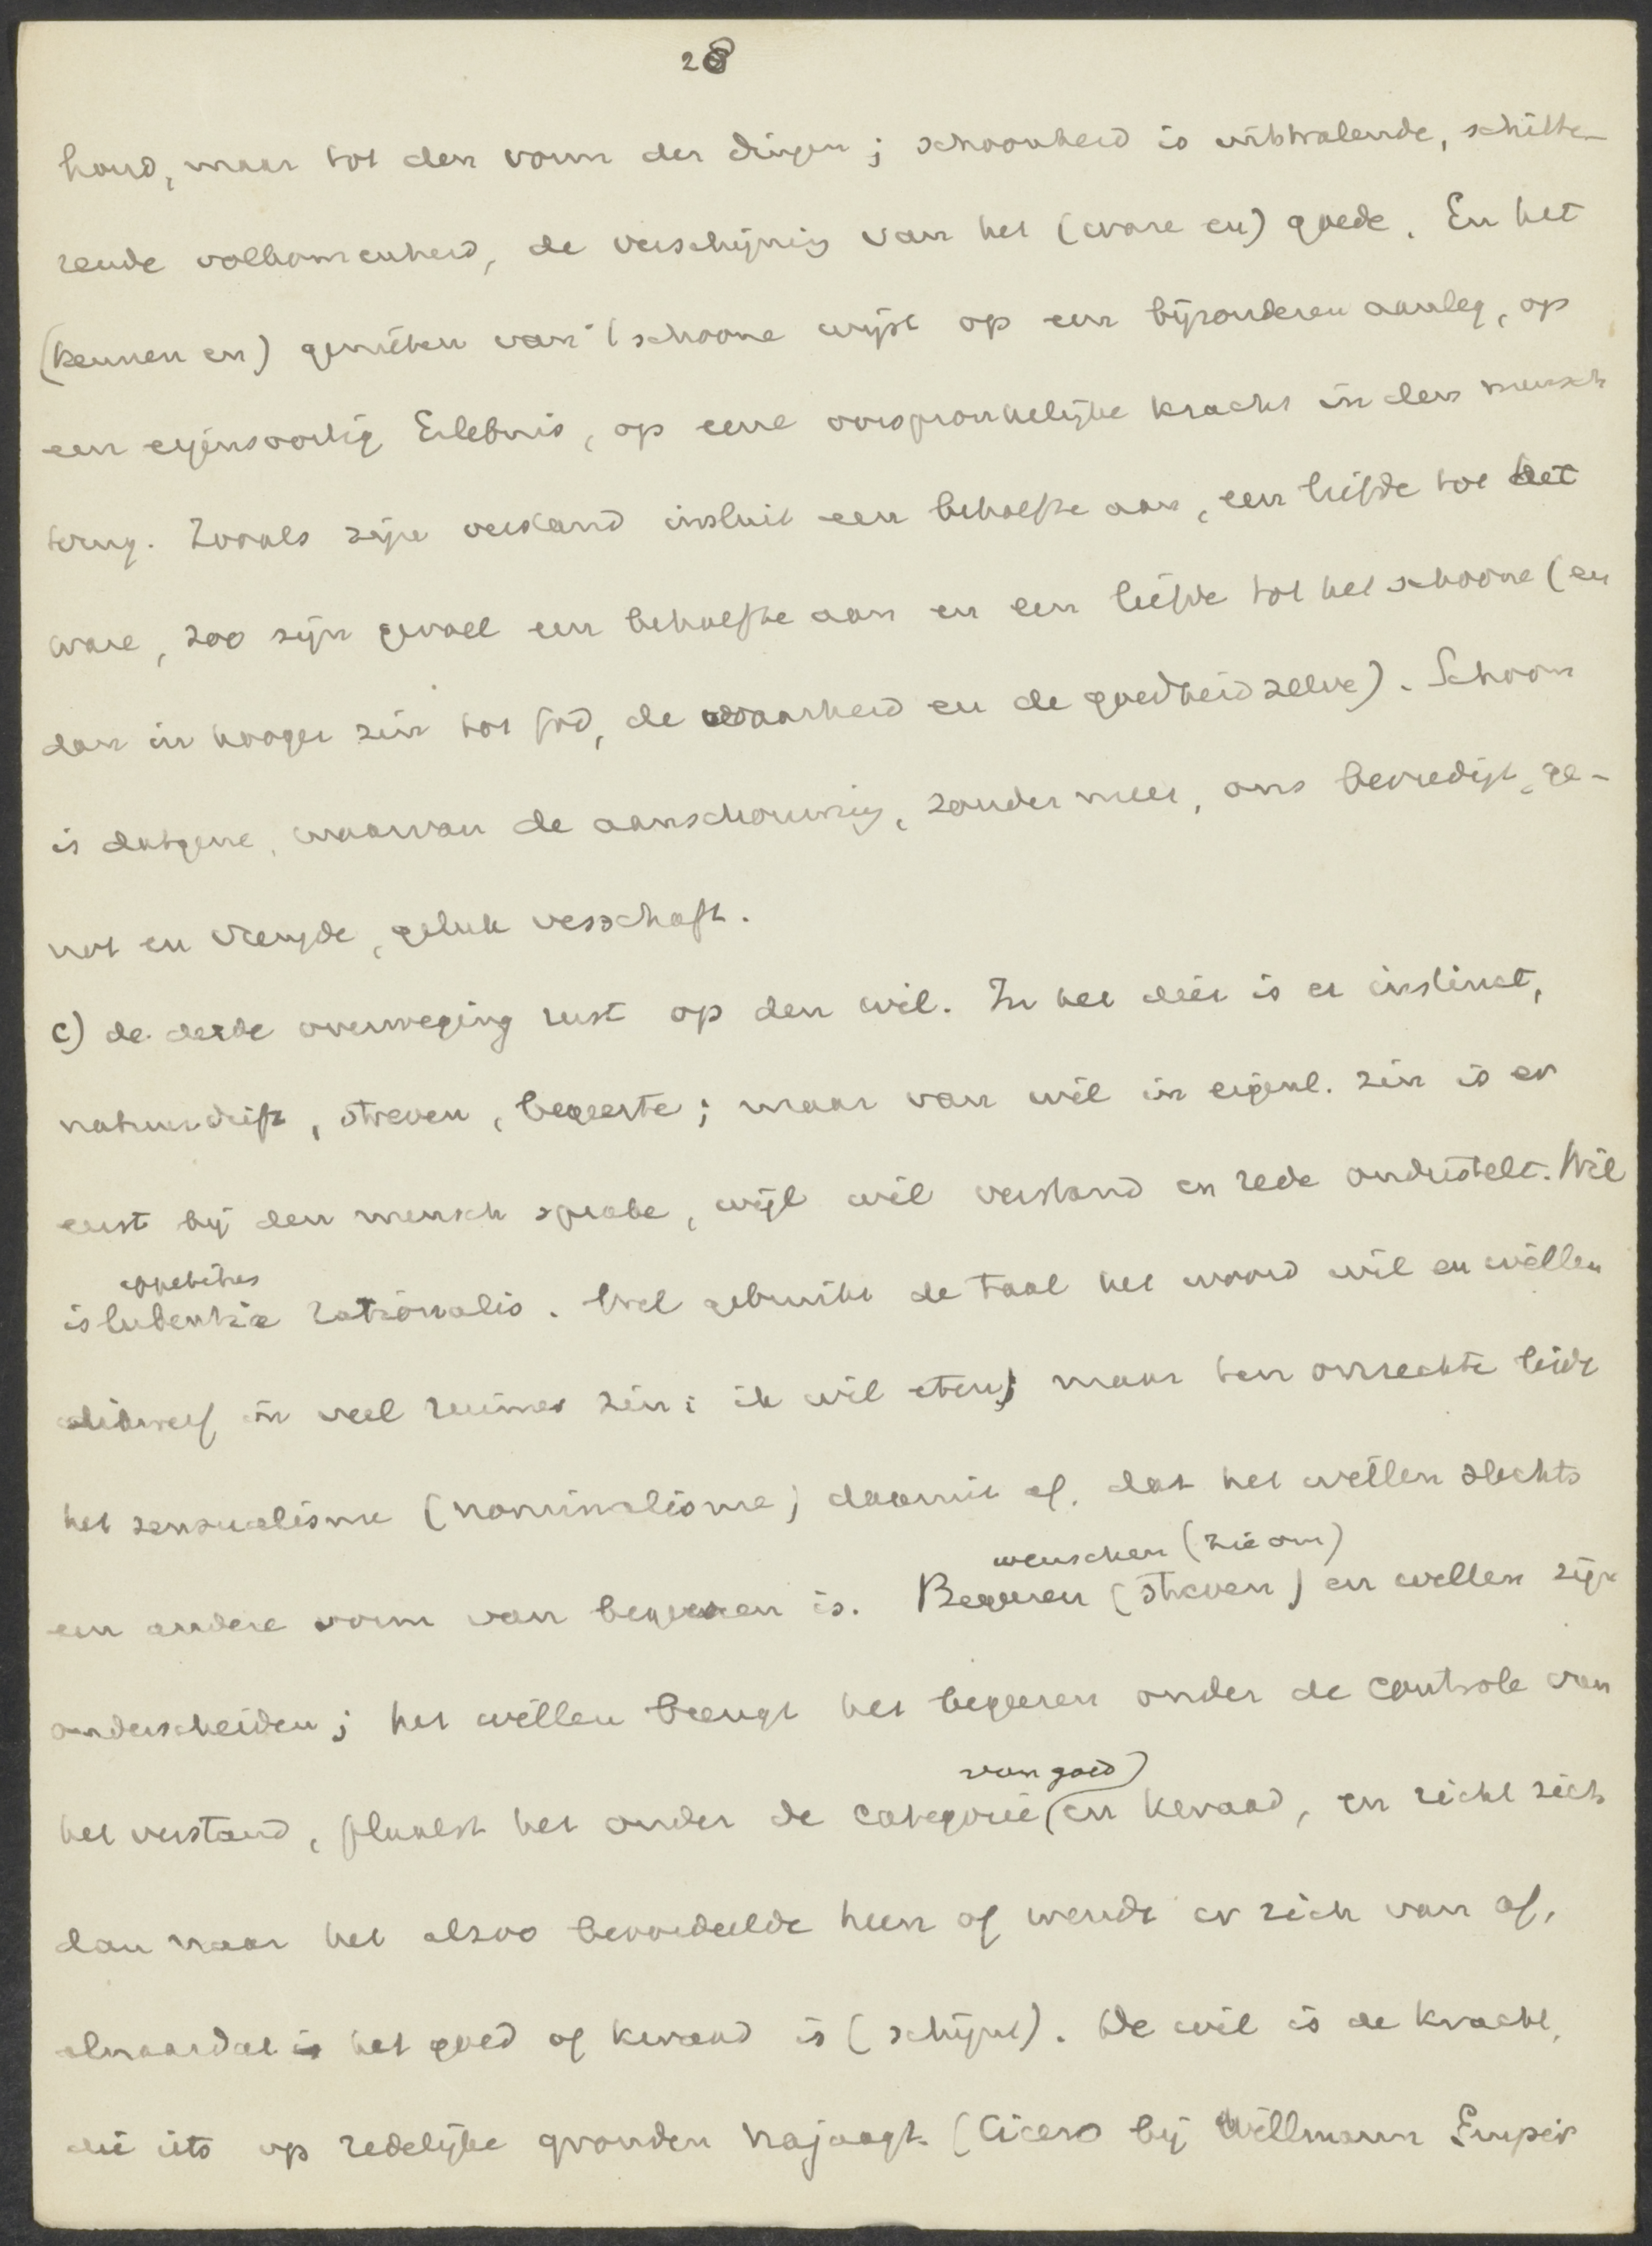 28
houd, maar tot den vorm der dingen; schoonheid is uitstralende, schitte-
rende volkomenheid, de verschijning van het (ware en) goede. En het
(kennen en) genieten van 't schoone wijst op een bijzonderen aanleg, op
een eigensoortig Erlebnis, op eene oorspronkelijke kracht in den mensch
terug. Zooals zijn verstand insluit een behoefte aan, een liefde tot het
ware, zoo zijn gevoel een behoefte aan en een liefde tot het schoone (en
dan in hooger zin tot God, de waarheid en de goedheid zelve). Schoon
is datgene, waarvan de aanschouwing, zonder meer, ons bevredigt, ge-
not en vreugde, geluk verschaft.
c) de derde overweging rust op den wil. In het dier is er instinct,
natuurdrift, streven, begeerte; maar van wil in eigenl. zin is er
eerst bij den mensch sprake, wijl wil verstand en rede onderstelt. Wil
appetitus
is lubentia rationalis. Wel gebruikt de taal het woord wil en willen
dikwerf in veel ruimer zin: ik wil eten; maar ten onrechte leidt
het sensualisme (nominalisme) daaruit af, dat het willen slechts
wenschen (zie om)
een andere vorm van begeeren is. Begeeren (streven) en willen zijn
onderscheiden; het willen brengt het begeeren onder de controle van
van goed)
het verstand, plaatst het onder de categorie (en kwaad, en richt zich
dan naar het alzoo beoordeelde heen of wendt er zich van af,
alnaardat is het goed of kwaad is (schijnt). De wil is de kracht,
die iets op redelijke gronden najaagt. (Cicero bij Willmann Empir